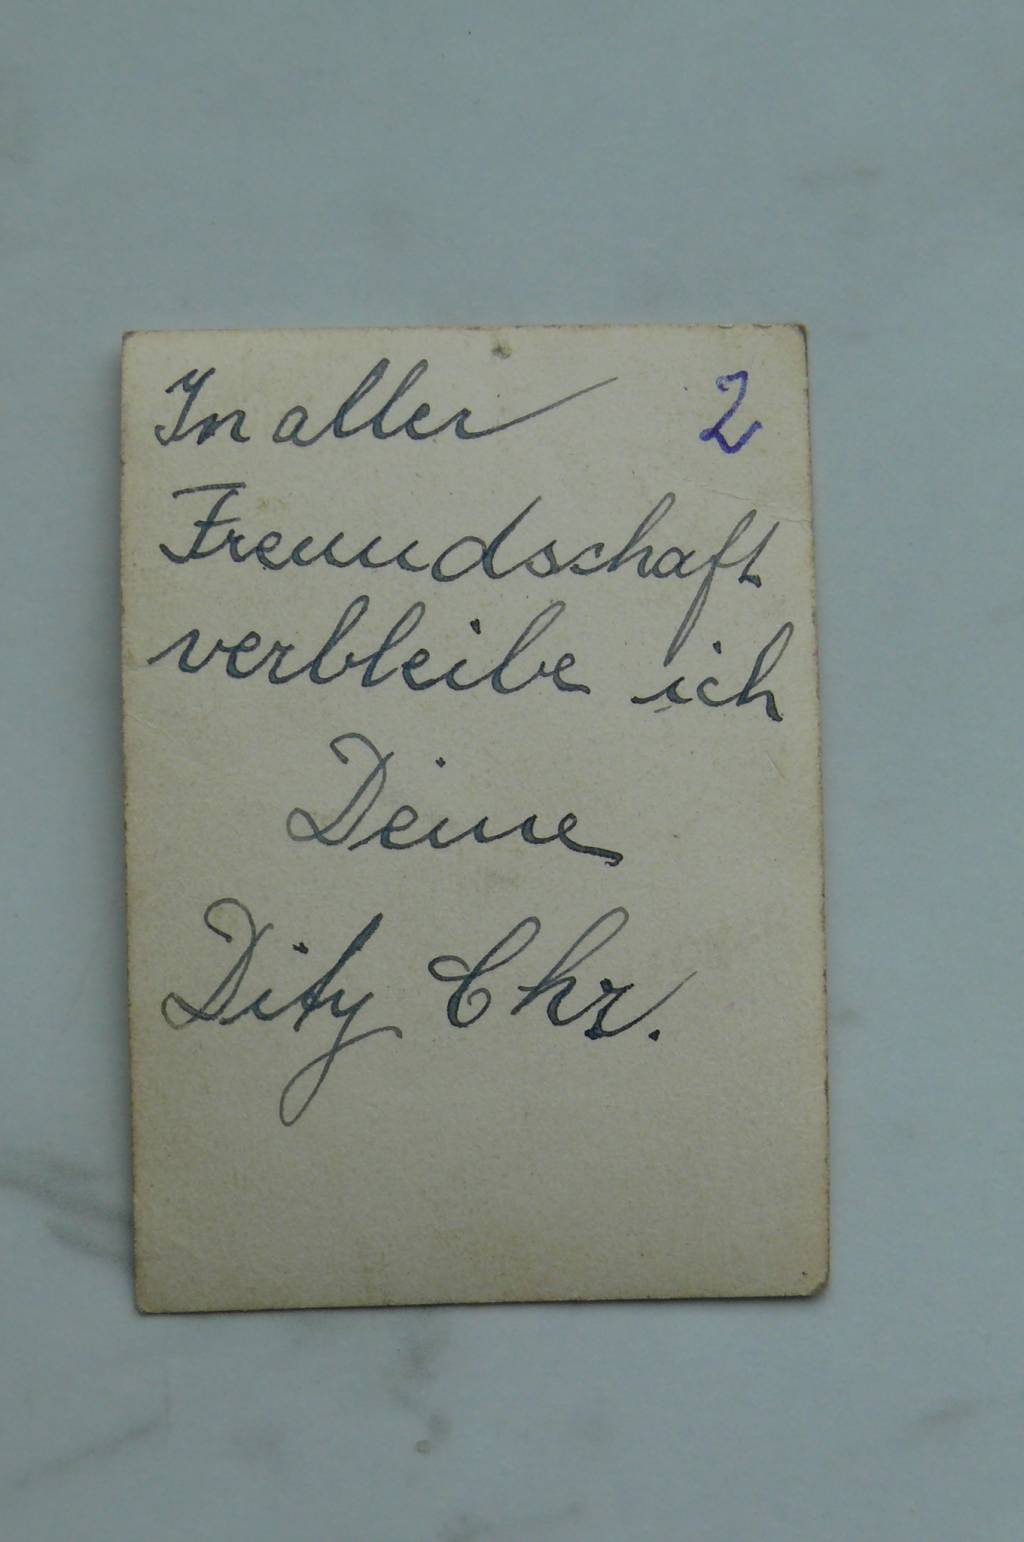 In aller 2
Freundschaft
verbleibe ich
Deine
Dity Chr.